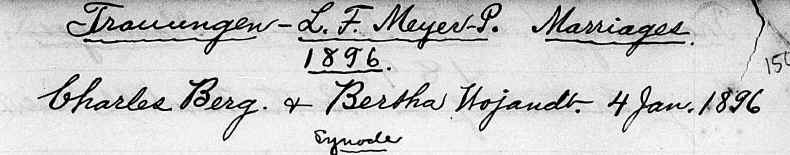 Trauungen – L. F. Meyer – P. Marriages.
1896.
150
Charles Berg. & Bertha Wojandt. 4 Jan. 1896
Synode